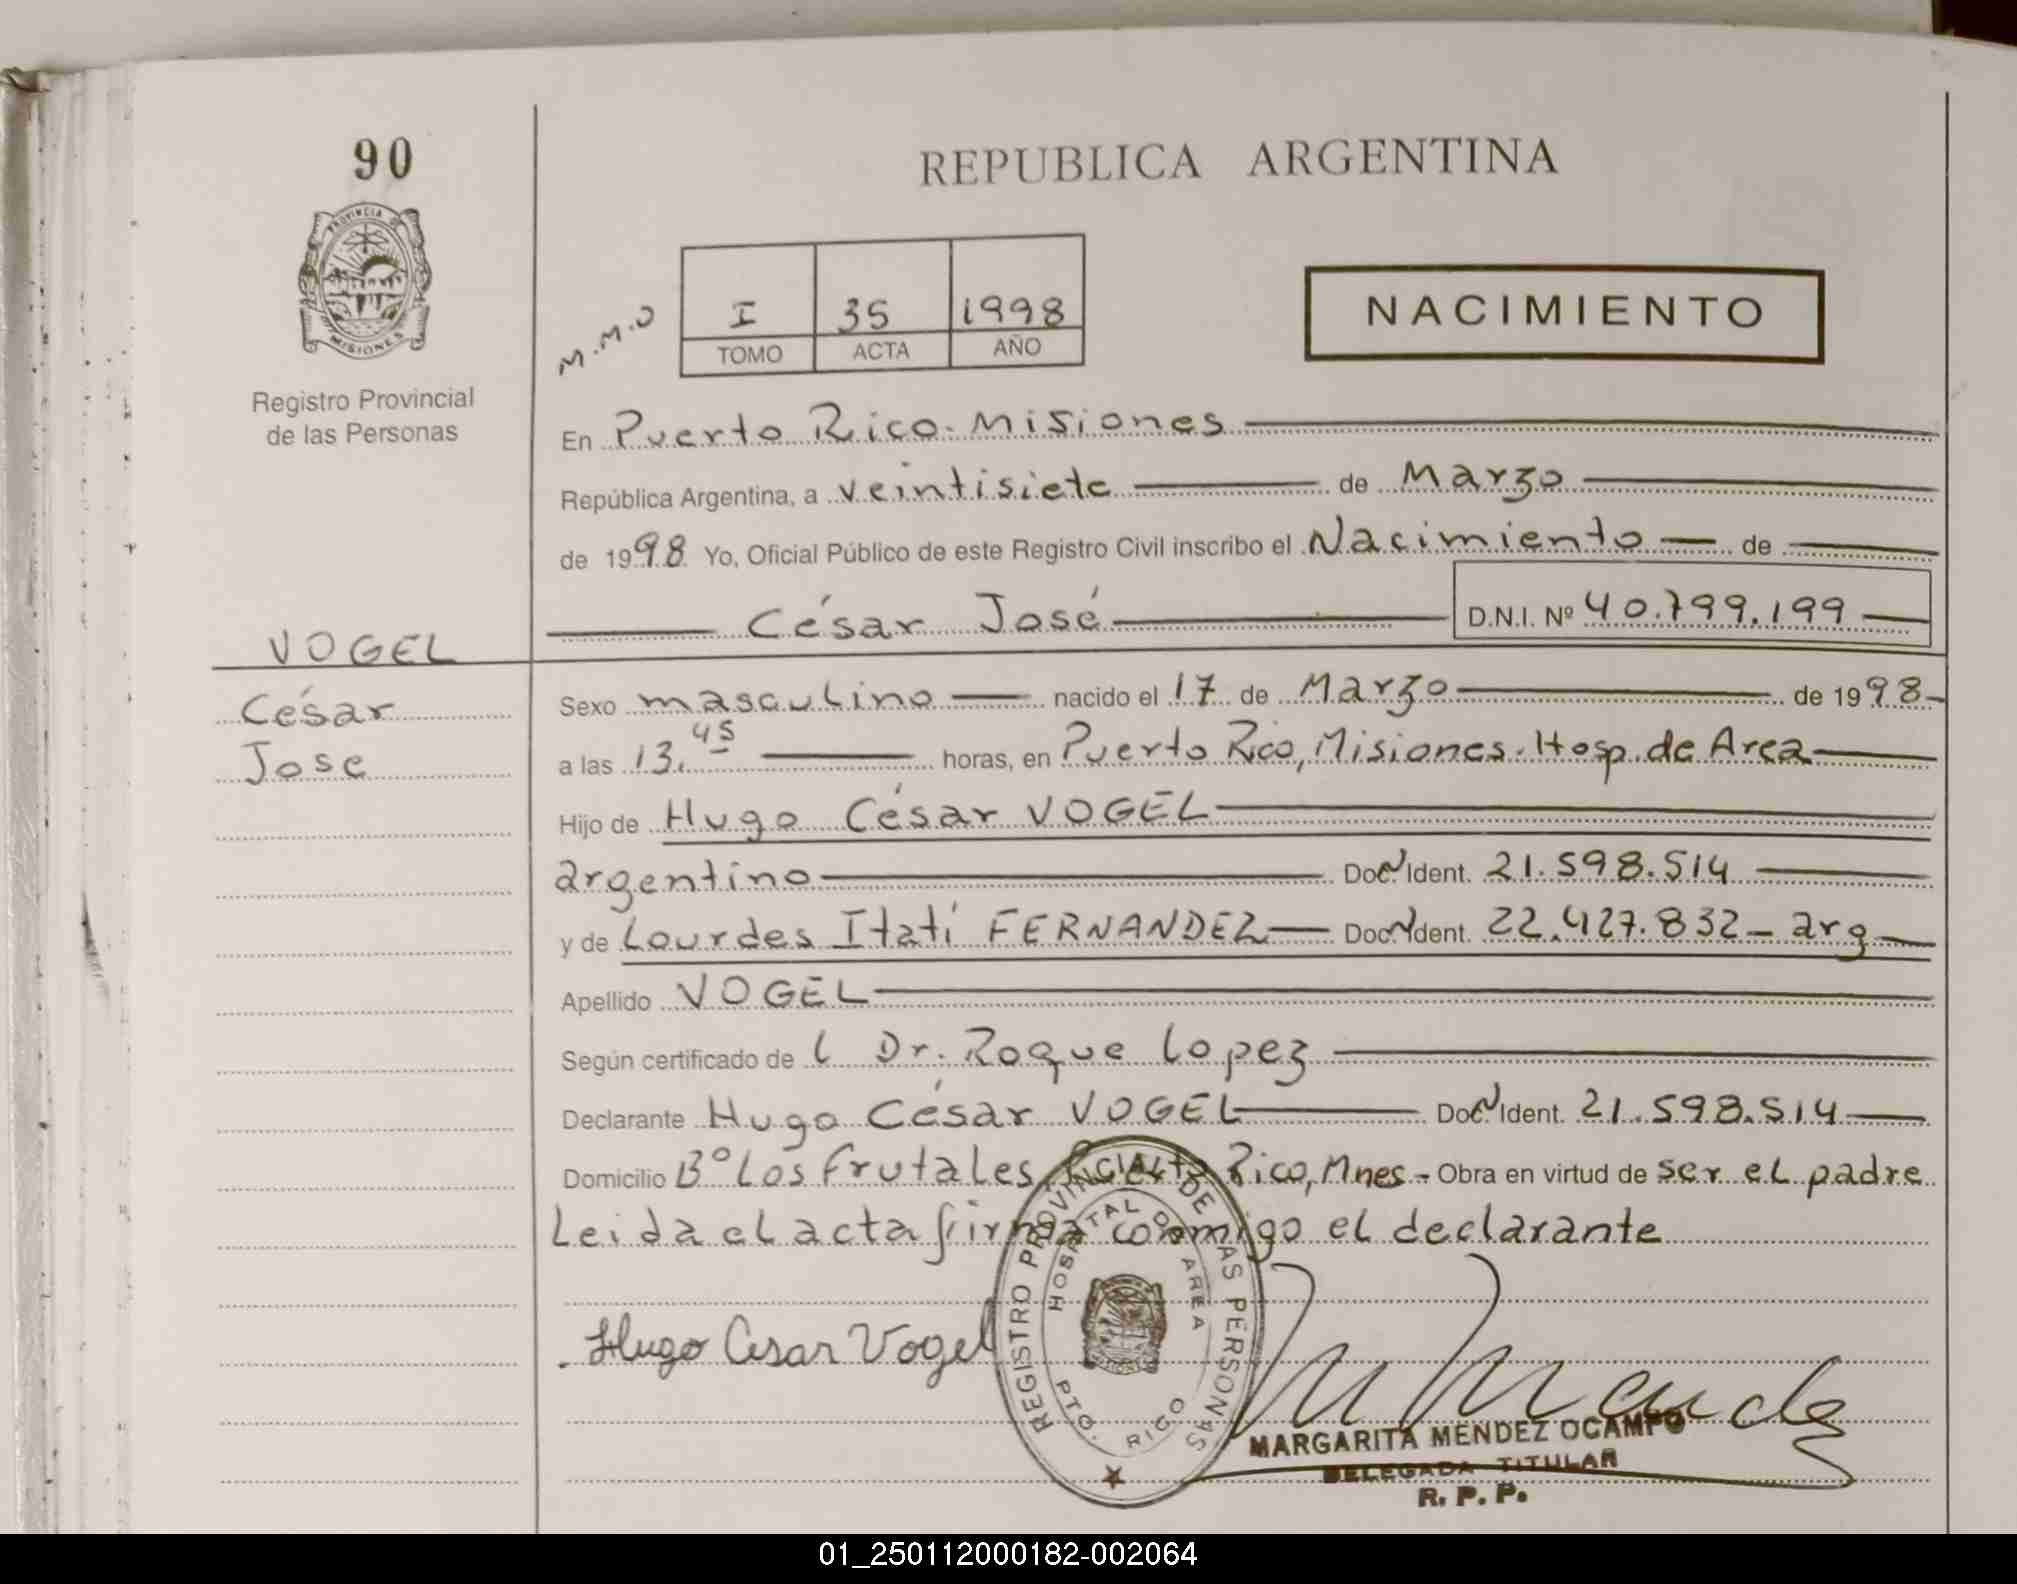 90
REPUBLICA ARGENTINA
PROVINCIA DE
MISIONES
Registro Provincial
de las Personas
M.M.O
I 35 1998
TOMO ACTA AÑO
NACIMIENTO
En Puerto Rico. Misiones
República Argentina, a veintisiete de Marzo
de 1998 Yo, Oficial Público de este Registro Civil inscribo el Nacimiento de
César José D.N.I. Nº 40.799.199
VOGEL
César
Jose
Sexo masculino nacido el 17 de Marzo de 1998
a las 13.45 horas, en Puerto Rico, Misiones. Hosp. de Area
Hijo de Hugo César VOGEL
argentino Doc. Ident. 21.598.514
y de Lourdes Itatí FERNANDEZ Doc. Ident. 22.427.832 - arg
Apellido VOGEL
Según certificado de l Dr. Roque Lopez
Declarante Hugo César VOGEL Doc. Ident. 21.598.514
Domicilio Bº Los Frutales, Puerto Rico, Mnes.- Obra en virtud de ser el padre
Leida el acta firma conmigo el declarante
Hugo Cesar Vogel
REGISTRO PROVINCIAL DE LAS PERSONAS
HOSPITAL DE AREA
PTO. RICO
M Mendez
MARGARITA MENDEZ OCAMPO
DELEGADA TITULAR
R. P. P.
01_250112000182-002064